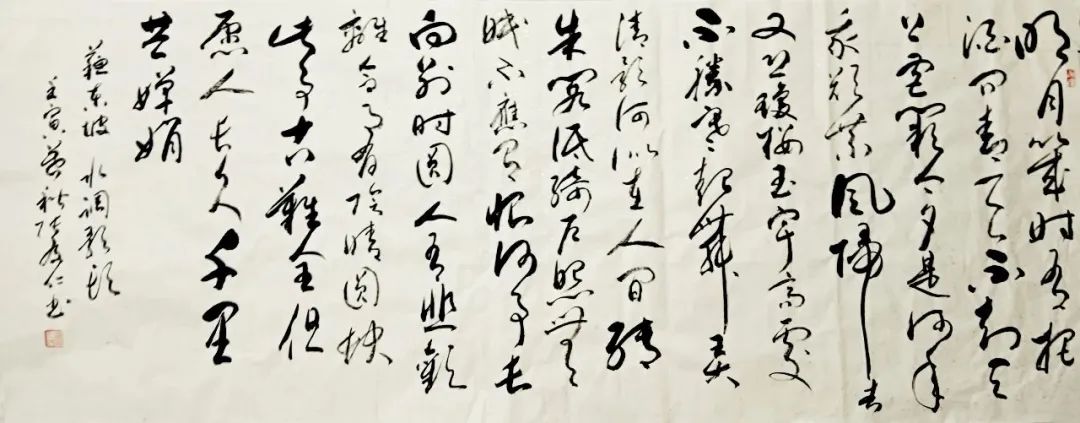 明月幾时有把
酒问青天不知天
上宫阙今夕是何年
我欲乘風归去
又恐瓊楼玉宇高处
不勝寒起舞弄
清影何似在人间转
朱阁低绮户照無
眠不應有恨何事长
向别时圆人有悲歡
離合月有陰晴圆缺
此事古難全但
愿人长久千里
共婵娟
蘇东坡 水调歌头
壬寅暮秋 仁书